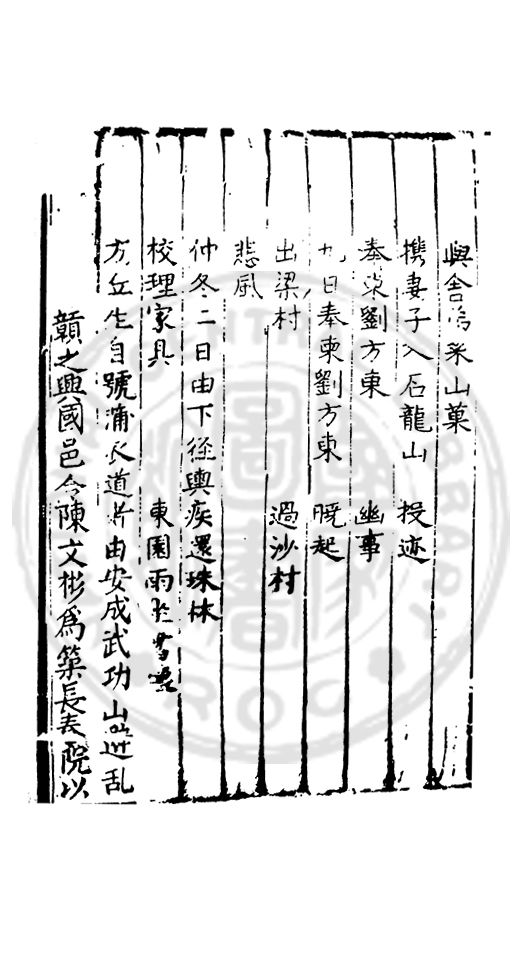 與舍采山菓
携妻子入石龍山　投迹
奉柬劉方東　幽事
九日奉柬劉方東　暁起
出梁村　過沙村
悲風
仲冬二日由下徑輿疾還珠林
校理家具　東園雨
方丘生自號蒲衣道由安成武功山避乱
贛之興國邑令陳文彬爲築長院以